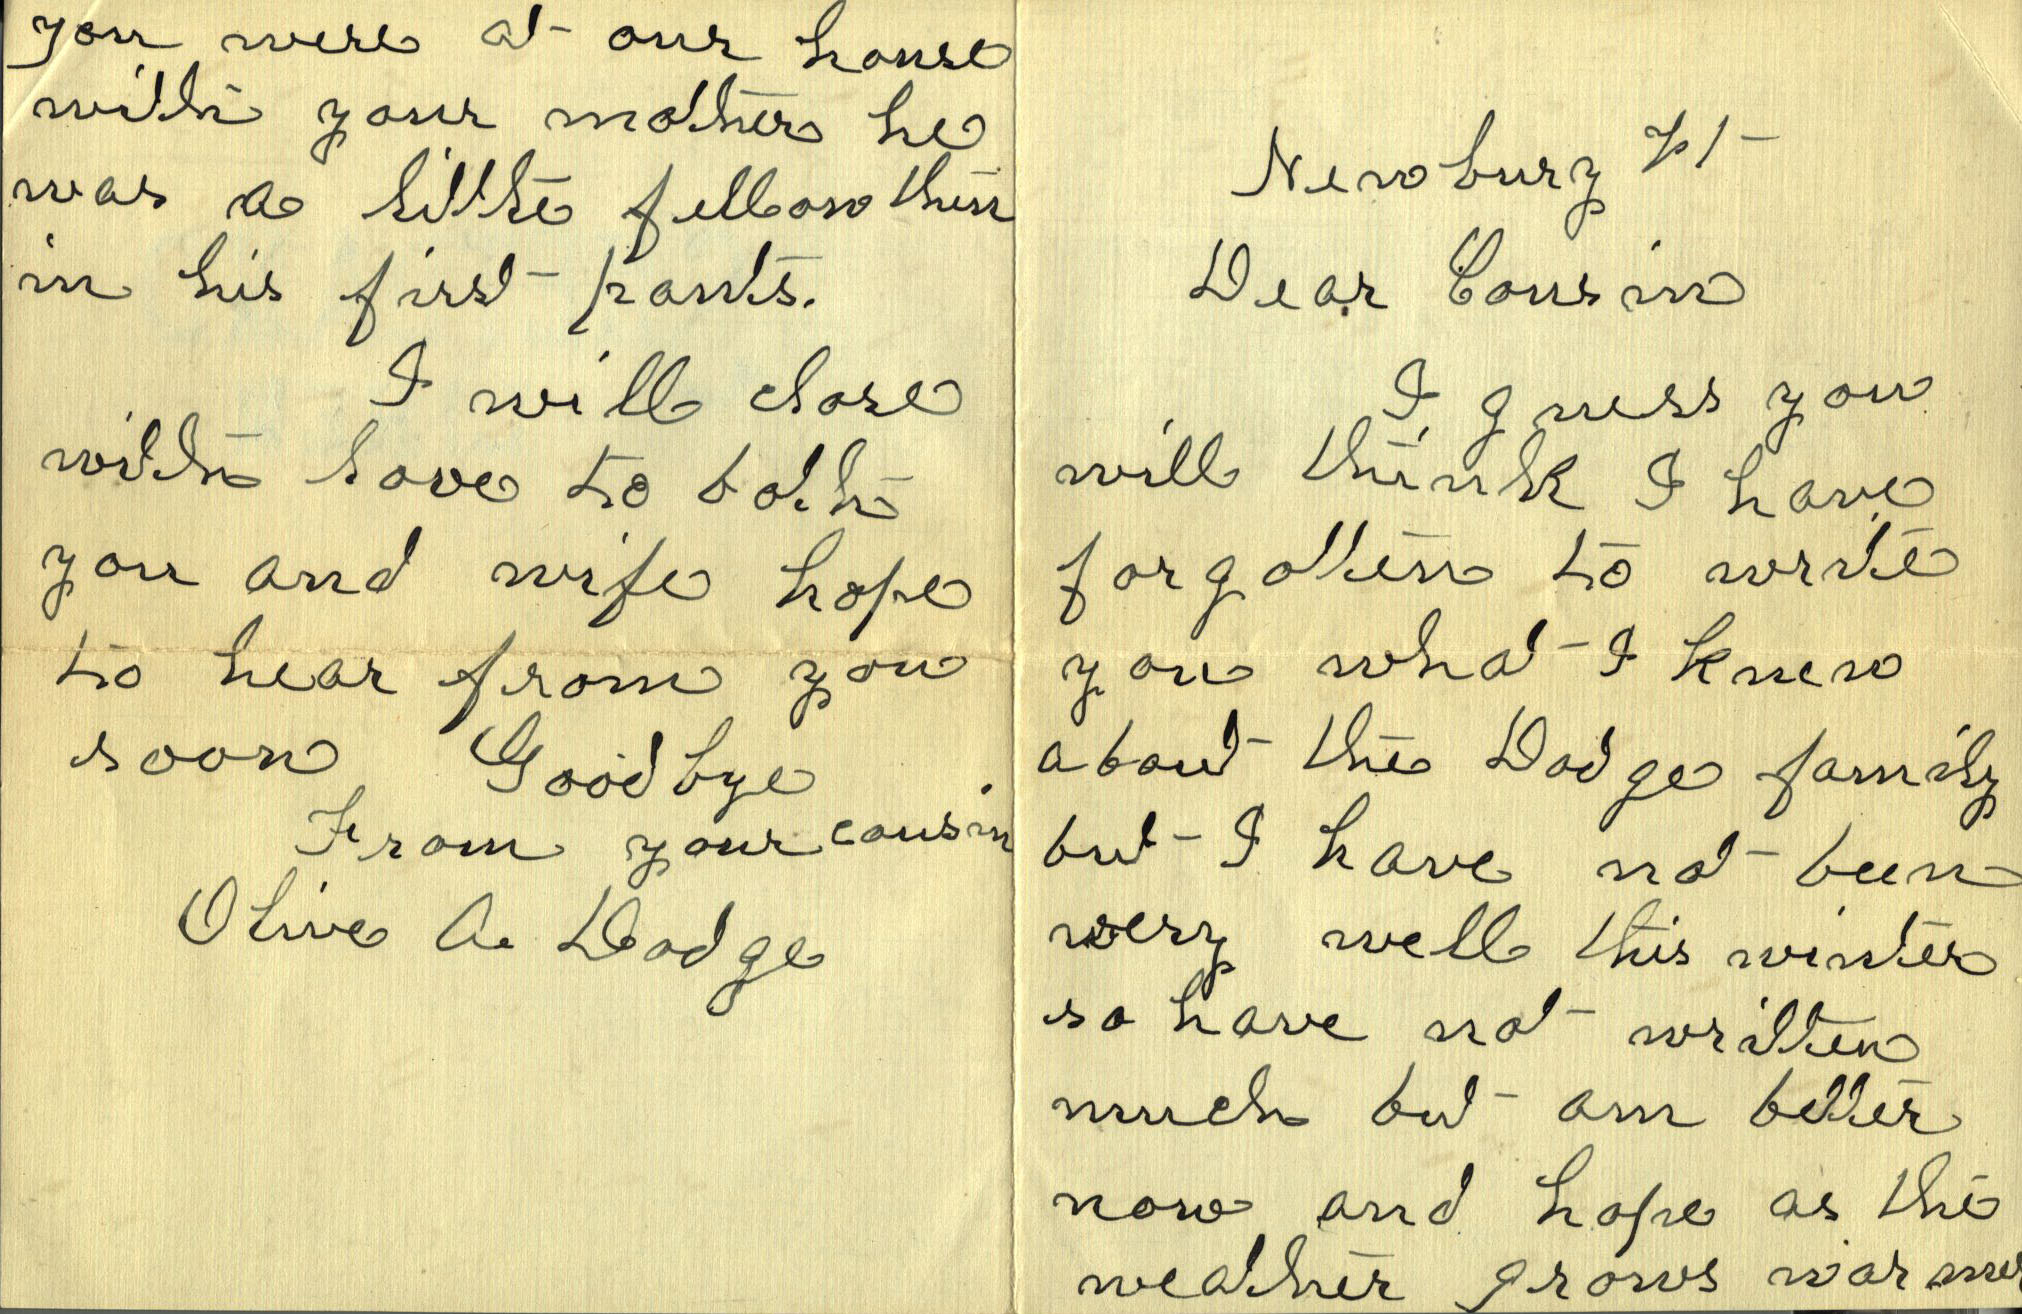 you were at our house
with your mother he
was a little fellow then
in his first pants.
I will close
with love to both
you and wife hope
to hear from you
soon Goodbye
From your cousin
Olive A. Dodge
Newbury Vt
Dear Cousin
I guess you
will think I have
forgotten to write
you what I knew
about the Dodge family
but I have not been
very well this winter
so have not written
much but am better
now and hope as the
weather grows warmer